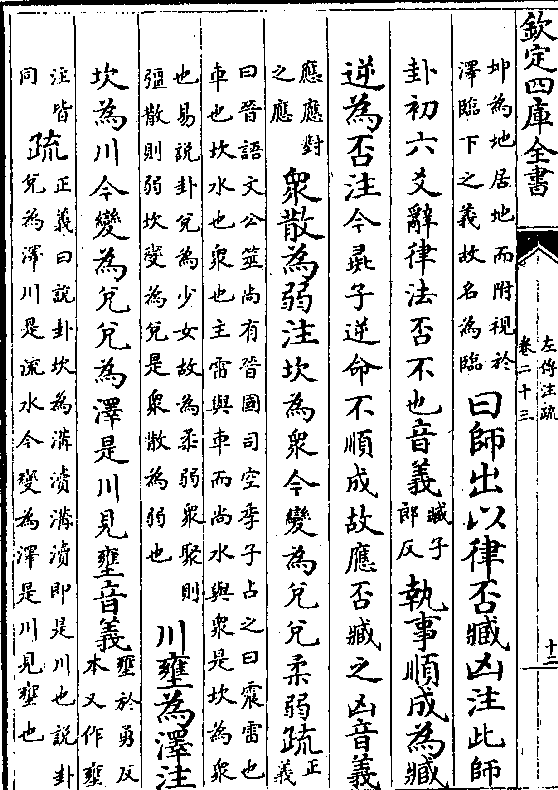 欽定四庫全書
左傳注疏
卷二十三
十二
坤為地居地而附視於
澤臨下之義故名為臨
曰師出以律否臧凶注此師
卦初六爻辭律法否不也音義
臧子
郎反
執事順成為臧
逆為否注今彘子逆命不順成故應否臧之凶音義
應應對
之應
衆散為弱注坎為衆今變為兌兌柔弱疏
正
義
曰晉語文公筮尚有晉國司空季子占之曰震雷也
車也坎水也衆也主雷與車而尚水與衆是坎為衆
也易說卦兌為少女故為柔弱衆聚則
彊散則弱坎變為兌是衆散為弱也
川壅為澤注
坎為川今變為兌兌為澤是川見壅音義
壅於勇反
本又作壅
注皆
同
疏
正義曰說卦坎為溝瀆溝瀆即是川也說卦
兌為澤川是流水今變為澤是川見壅也